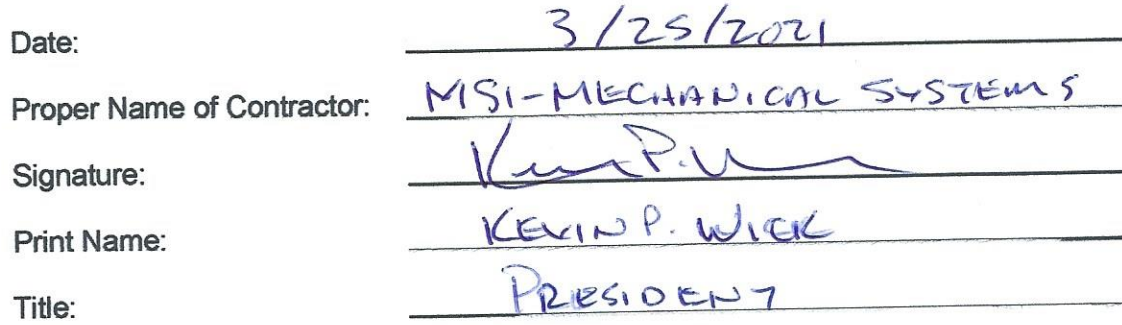 Date: 3/25/2021
Proper Name of Contractor: MSI-MECHANICAL SYSTEMS
Signature: Kevin P. W
Print Name: KEVIN P. WICK
Title: PRESIDENT